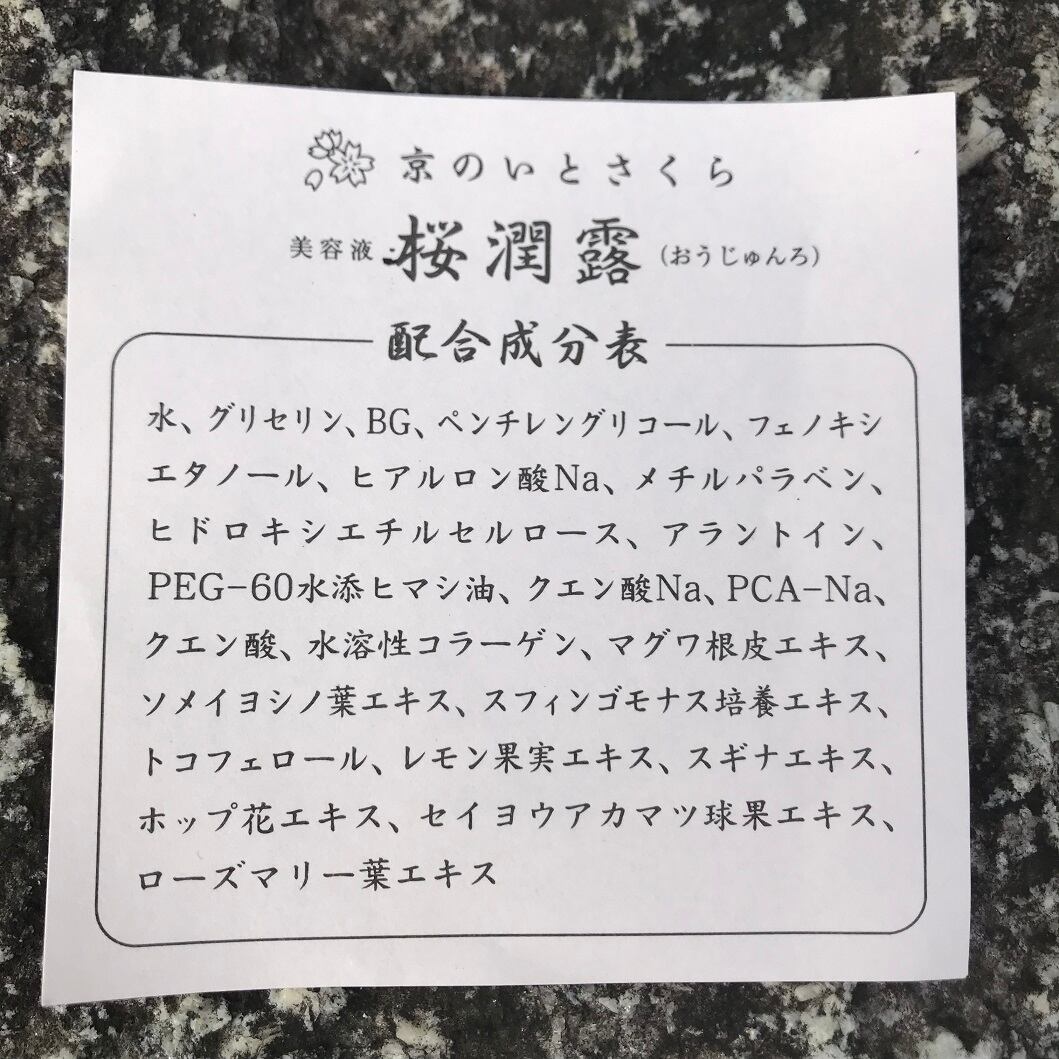 京のいとさくら
美容液 桜潤露 (おうじゅんろ)
配合成分表
水、グリセリン、BG、ペンチレングリコール、フェノキシ
エタノール、ヒアルロン酸Na、メチルパラベン、
ヒドロキシエチルセルロース、アラントイン、
PEG-60水添ヒマシ油、クエン酸Na、PCA-Na、
クエン酸、水溶性コラーゲン、マグワ根皮エキス、
ソメイヨシノ葉エキス、スフィンゴモナス培養エキス、
トコフェロール、レモン果実エキス、スギナエキス、
ホップ花エキス、セイヨウアカマツ球果エキス、
ローズマリー葉エキス